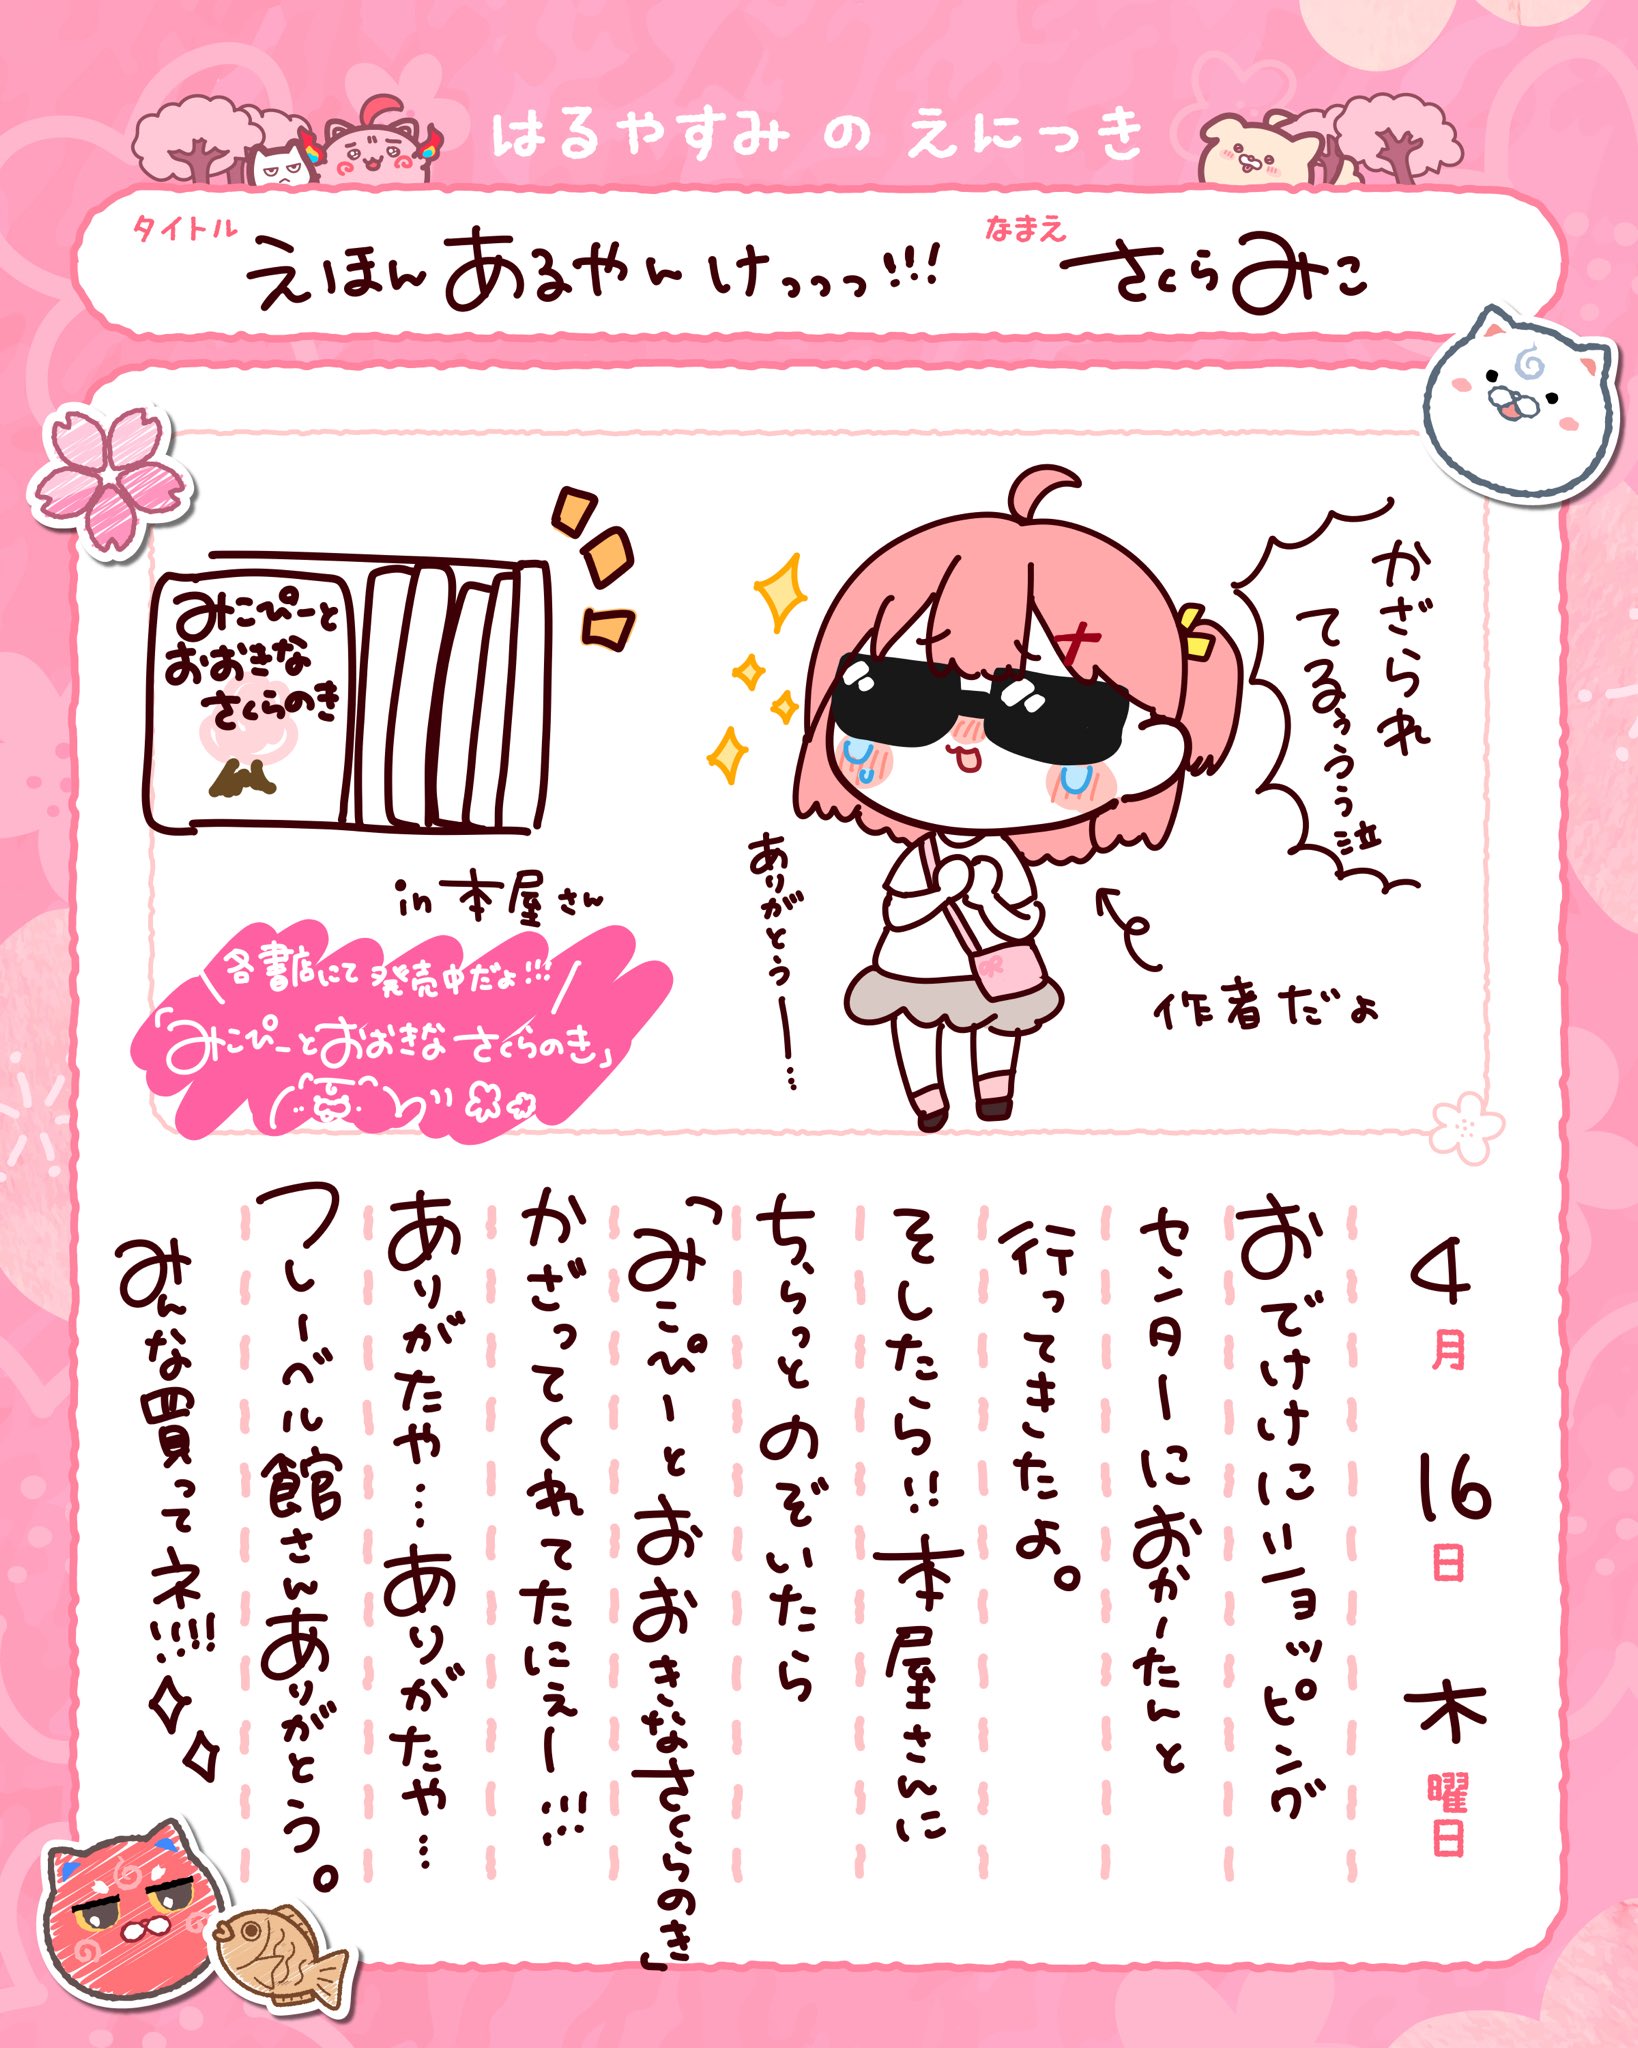 はるやすみ の えにっき
タイトル
えほんあるやんけっっっ!!!
なまえ
さくらみこ
みこぴーと
おおきな
さくらのき
in 本屋さん
各書店にて発売中だよ!!!
「みこぴーとおおきなさくらのき」
かざられ
てるぅぅぅ泣
ありがとうー…
作者だよ
4月16日木曜日
おでけけにショッピング
センターにおかーたんと
行ってきたよ。
そしたら!!本屋さんに
ちらっとのぞいたら
「みこぴーとおおきなさくらのき」
かざってくれてたにぇー!!!
ありがたや…ありがたや…
フレーベル館さんありがとう。
みんな買ってネ!!!!